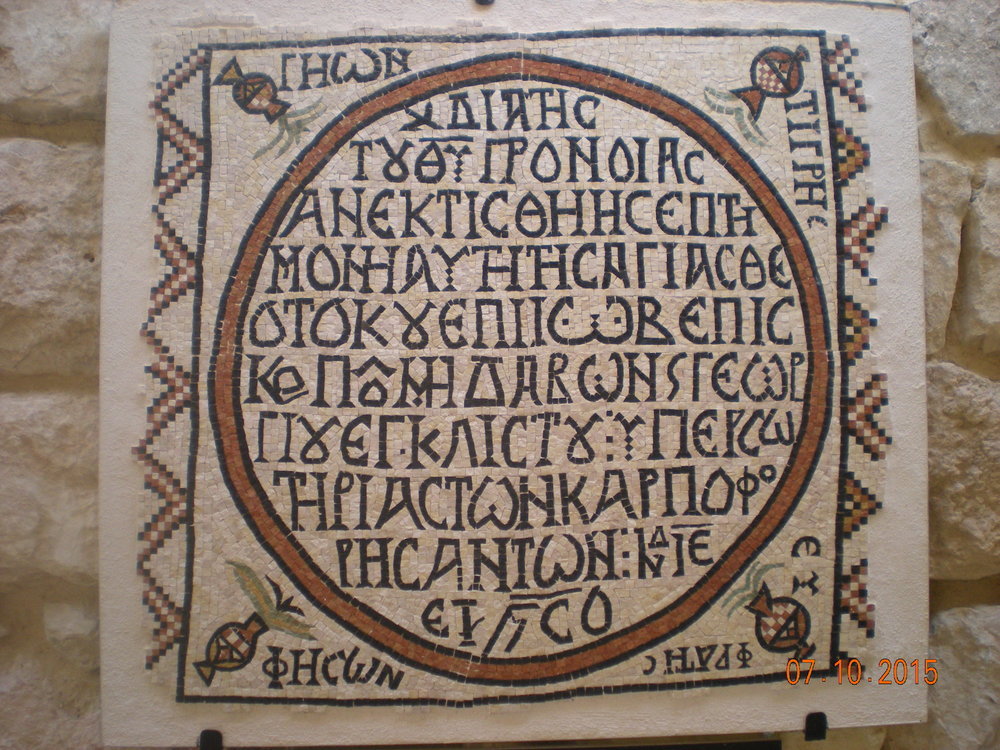 ΓΗΩΝ
ΤΙΓΡΗΣ
ΧΔΙΑΤΗϹ
ΤȢΘΥ ΠΡΟΝΟΙΑϹ
ΑΝΕΚΤΙϹΘΗΗϹΕΠΤΗ
ΜΟΝΗΑΥΤΗΤΗϹΑΓΙΑϹΘΕ
ΟΤΟΚȢΕΠΙΙϹ·ΩΒΕΠΙϹ
ΚΟΠΟΜΗΔΑΒΩΝϚΓΕΩΡ
ΓΙȢΕΓ·ΚΛΙϹΤȢ:ΥΠΕΡϹΩ
ΤΗΡΙΑϹΤΩΝΚΑΡΠΟΦΟ
ΡΗϹΑΝΤΩΝ:ΙΝΔΙΕ
ΕΤ ϹΟ
ΦΗϹΩΝ
ΕΥ
ΦΡΑΤΗϹ
07.10.2015